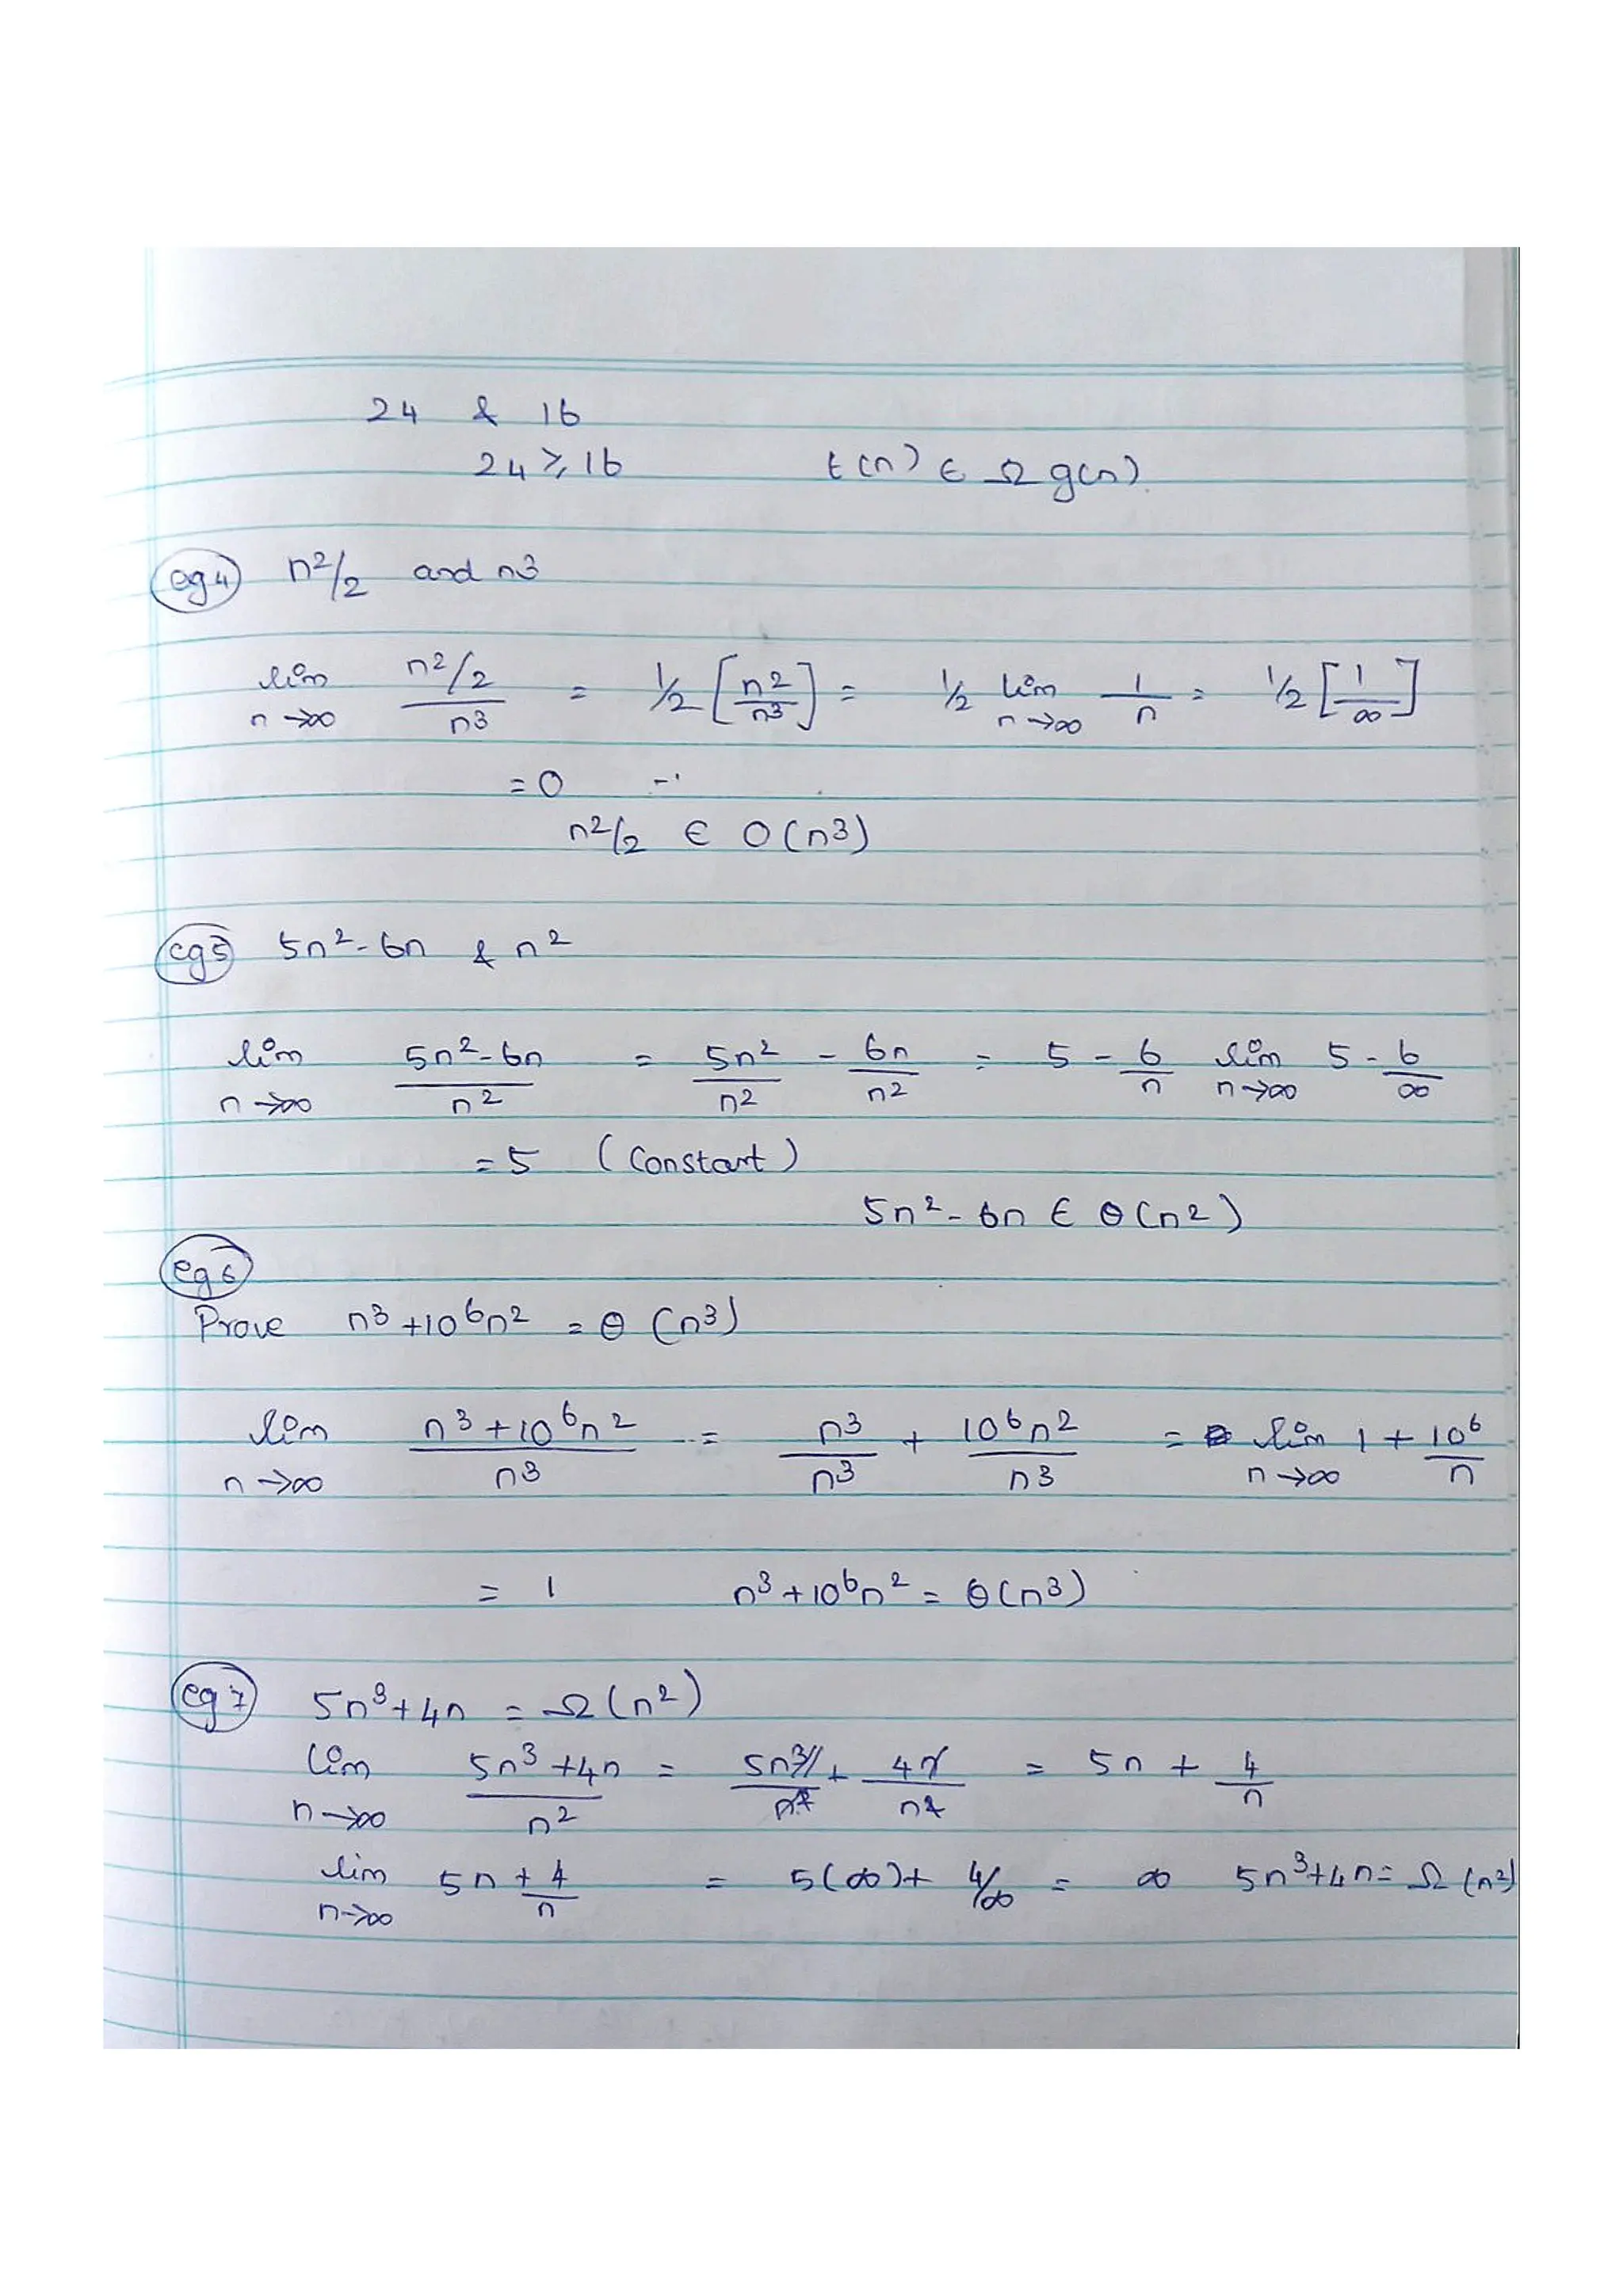 24 & 16
24 ≥ 16 t(n) ∈ Ω g(n)
eg 4 n²/2 and n3
lim n→∞ (n2/2)/n3 = 1/2 [n2/n3] = 1/2 lim n→∞ 1/n = 1/2 [1/∞]
= 0
n2/2 ∈ O(n3)
eg 5 5n² - 6n & n²
lim n→∞ (5n² - 6n)/n2 = 5n²/n2 - 6n/n2 = 5 - 6/n lim n→∞ 5 - 6/∞
= 5 (Constant)
5n² - 6n ∈ θ(n2)
eg 6
Prove n3 + 10⁶n² = θ(n3)
lim n→∞ (n³ + 10⁶n²)/n3 = n3/n3 + 10⁶n2/n3 = lim n→∞ 1 + 10⁶/n
= 1 n³ + 10⁶n² = θ(n3)
eg 7 5n³ + 4n = Ω(n²)
lim n→∞ (5n³ + 4n)/n² = 5n³/n² + 4n/n² = 5n + 4/n
lim n→∞ 5n + 4/n = 5(∞) + 4/∞ = ∞ 5n³ + 4n = Ω(n²)